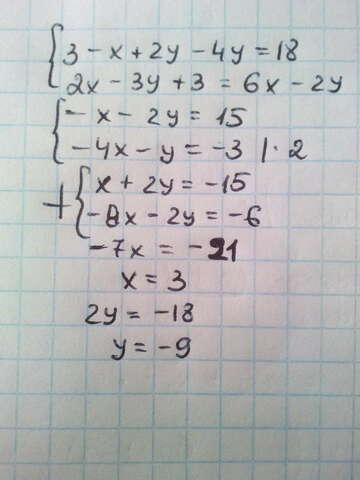 { 3 - x + 2y - 4y = 18
2x - 3y + 3 = 6x - 2y
{ - x - 2y = 15
- 4x - y = -3 | · 2
+ { x + 2y = -15
- 8x - 2y = -6
- 7x = - 21
x = 3
2y = -18
y = -9